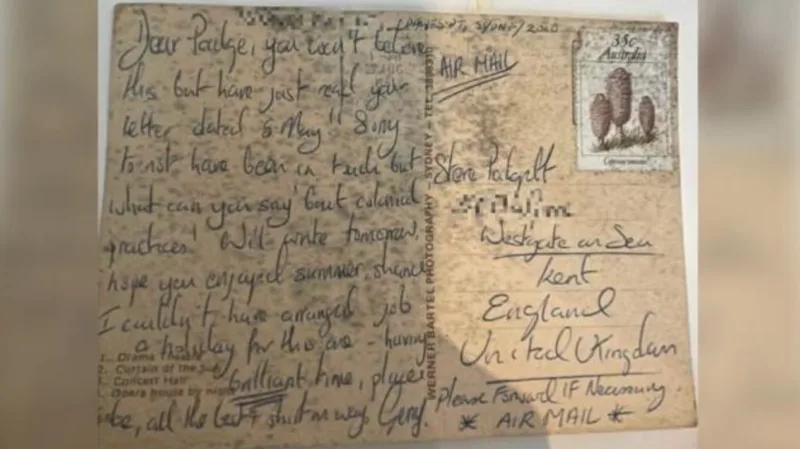 Dear Padge, you won't believe
this but have just read your
letter dated 5 May" Sorry
to not have been in touch but
what can you say 'bout colonial
practices! Will write tomorrow,
hope you enjoyed summer, shame
I couldn't have arranged job
a holiday for this one - having
brilliant time, player
all the best & shirt on way. Gerry.
1. Drama Theatre
2. Curtain of the Sun
3. Concert Hall
Opera house by night
WERNER BARTEL PHOTOGRAPHY - SYDNEY - TEL.
SYDNEY 2000
AIR MAIL
35c
Australia
Steve Padgett
Westgate on Sea
Kent
England
United Kingdom
Please Forward IF Necessary.
* AIR MAIL *